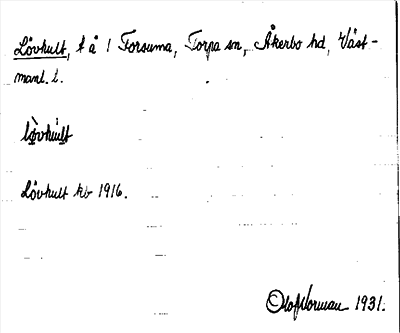 Lövhult, t å 1 Forsuma, Torpa sn, Åkerbo hd, Väst-
manl. l.
lö̀vhúlt
Lövhult kb 1916.
Olof Norman 1931.